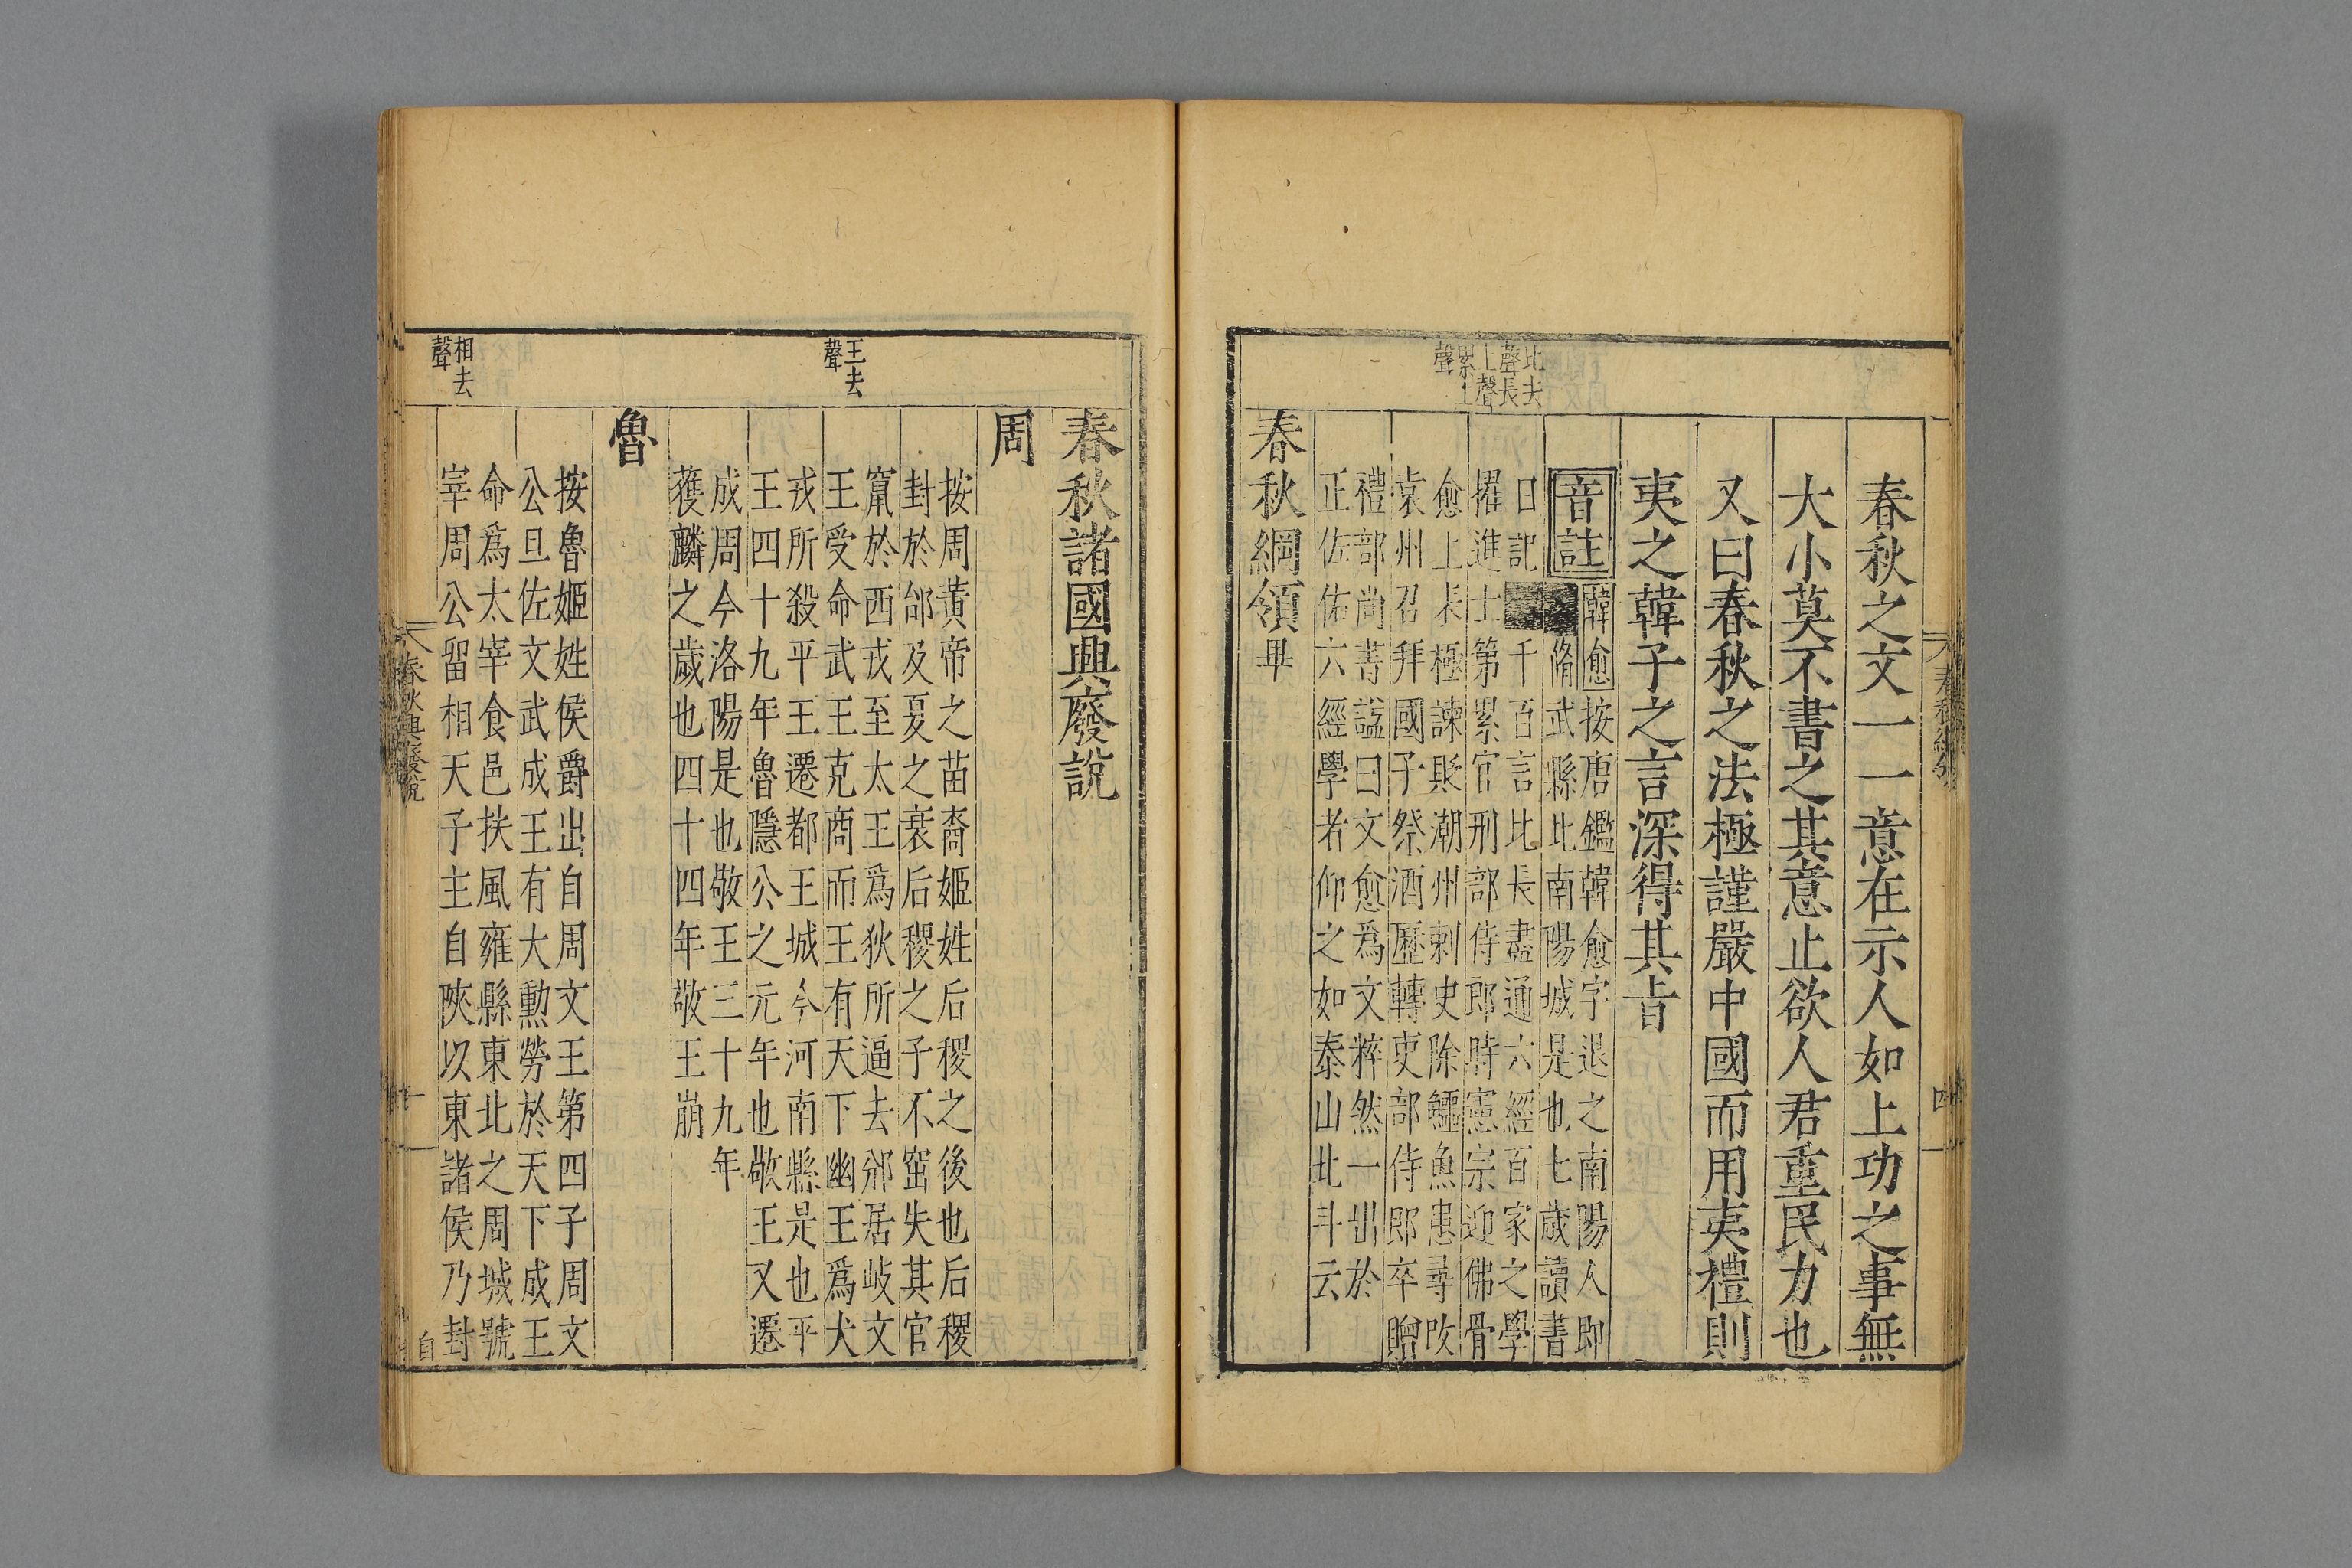 春秋之文一一意在示人如上功之事無
大小莫不書之其意止欲人君重民力也
又曰春秋之法極謹嚴中國而用夷禮則
夷之韓子之言深得其旨
音註
韓愈按唐鑑韓愈字退之南陽人即
脩武縣比南陽城是也七歲讀書
日記千百言比長盡通六經百家之學
擢進士第累官刑部侍郎時憲宗迎佛骨
愈上表極諫貶潮州刺史除鱷魚患尋改
袁州召拜國子祭酒歷轉吏部侍郎卒贈
禮部尚書謚曰文愈爲文粹然一出於
正佐佑六經學者仰之如泰山北斗云
比去聲長上聲累上聲
春秋綱領畢
春秋綱領
四
春秋諸國興廢說
周
王去聲
按周黃帝之苗裔姬姓后稷之後也后稷
封於邰及夏之衰后稷之子不窋失其官
竄於西戎至太王爲狄所逼去邠居岐文
王受命武王克商而王有天下幽王爲犬
戎所殺平王遷都王城今河南縣是也平
王四十九年魯隱公之元年也敬王又遷
成周今洛陽是也敬王三十九年
獲麟之歲也四十四年敬王崩
魯
相去聲
按魯姬姓侯爵出自周文王第四子周文
公旦佐文武成王有大勳勞於天下成王
命爲太宰食邑扶風雍縣東北之周城號
宰周公留相天子主自陝以東諸侯乃封
春秋興廢說
一
自